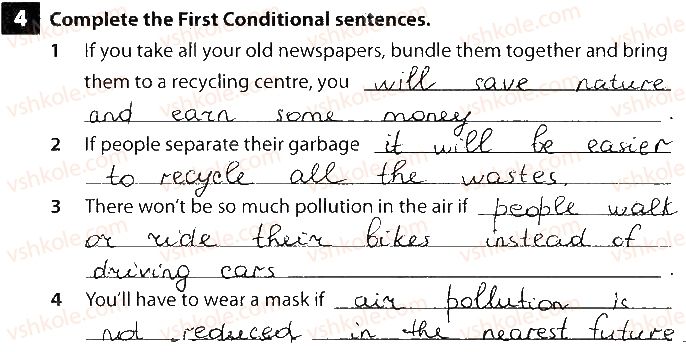 4 Complete the First Conditional sentences.
1 If you take all your old newspapers, bundle them together and bring
them to a recycling centre, you will save nature
and earn some money.
2 If people separate their garbage it will be easier
to recycle all the wastes.
3 There won't be so much pollution in the air if people walk
or ride their bikes instead of
driving cars.
4 You'll have to wear a mask if air pollution is
not reduced in the nearest future.